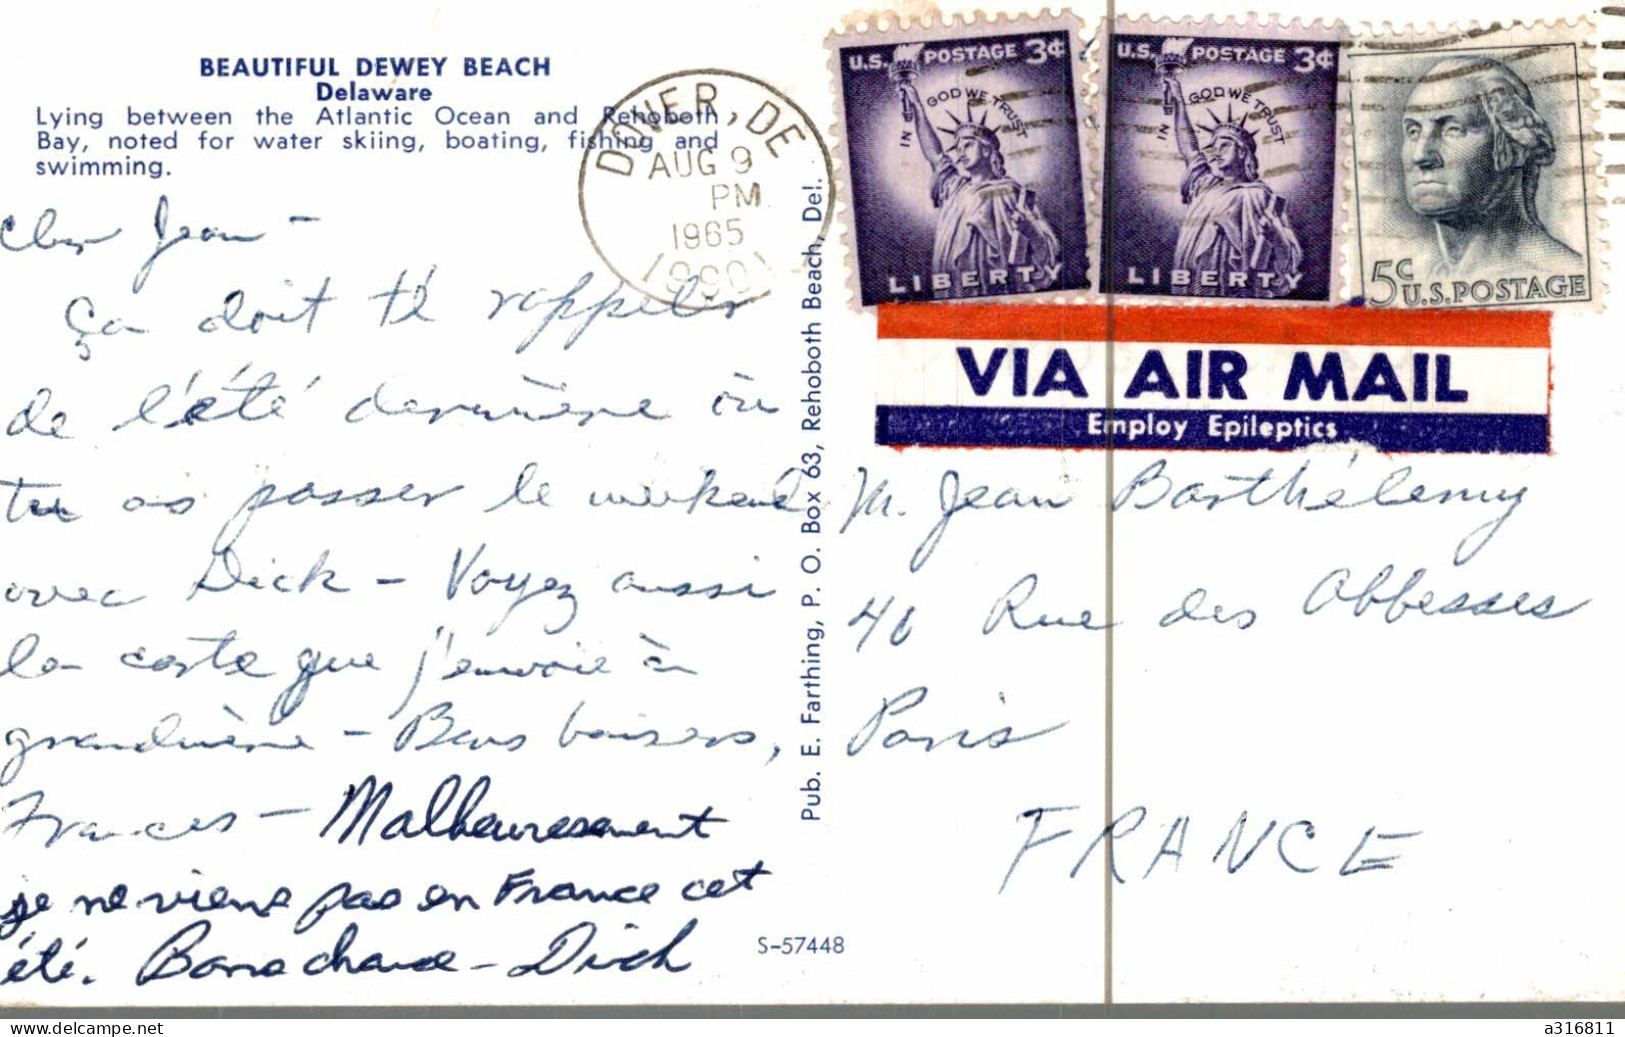 BEAUTIFUL DEWEY BEACH
Delaware
Lying between the Atlantic Ocean and Rehoboth
Bay, noted for water skiing, boating, fishing and
swimming.
Cher Jean -
Ça doit te rappeler
de l'été dernière où
tu as passer le weekend
avec Dick - Voyez aussi
la carte que j'envoie à
grandmère - Bons baisers,
Frances - Malheuresement
je ne viens pas en France cet
été. Bonne chance - Dick
DOVER, DE
AUG 9
PM
1965
Pub. E. Farthing, P. O. Box 63, Rehoboth Beach, Del.
S-57448
U.S. POSTAGE 3¢
IN GOD WE TRUST
LIBERTY
U.S. POSTAGE 3¢
IN GOD WE TRUST
LIBERTY
5c U.S. POSTAGE
VIA AIR MAIL
Employ Epileptics
M. Jean Barthélemy
40 Rue des Abbesses
Paris
FRANCE
www.delcampe.net
a316811